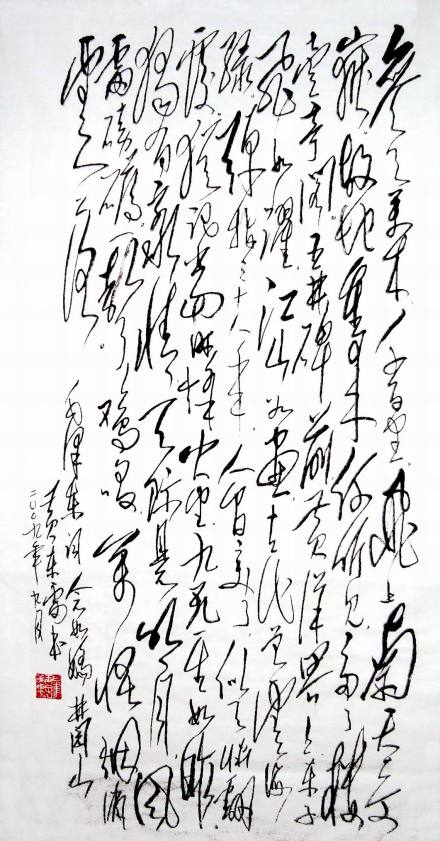 参天万木千百里飞上南天奇
嶽故地重来何所见多了楼
台亭阁五井碑前黄洋界上车子
飞如躍江山如画古代曾云海
绿弹指三十八年人间变了似天渊翻
覆犹记当时烽火里九死一生如昨
独有豪情天际悬明月风
雷磅礴一声鸡唱万怪烟消
云落
毛泽东词念奴娇井冈山
黄东雷书
二〇〇九年九月